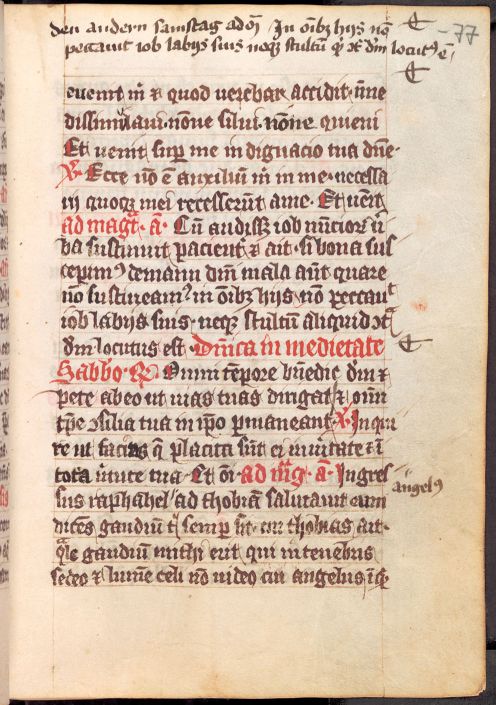 -77
den andern samstag ad Mꝫ In oībꝫ hijs nō
peccauit iob labijs suis neqꝫ stultū qͥ ↄͣ dm̄ locutꝰ ē
euenit m̄ ⁊ quod uerebar accidit· nne
dissimulaui· nōne silui· nōne quieui
Et uenit sup̱ me indignacio tua dn̄e·
V̷· Ecce nō ē auxiliū m̄ in me· necessa
rij quoqꝫ mei recesserūt a me· Et uēit
ad magᵃ· a̅· Cū audisꝫ iob nūcioꝝ ū
ba sustinuit pacient᷑ ⁊ ait· si bona sus
cepimꝰ de manu dm̄ mala aūt quare
nō sustineamꝰ in oībꝫ hijs nō peccauᵗ
iob labijs suis· neqꝫ stultū aliquid ↄᵃ
dm̄ locutus est· Dnīca in medietate
Sabbo· R̷· Omni tēpore bn̄edic dm̄ ⁊
pete ab eo ut uias tuas dirigat ⁊ omī
tp̄e ↄsilia tua in ip̄o p̱maneant· V̷· Inqui
re ut facias q̄ placita sūt ei in uītate ⁊ ī
tota uirtute tua· Et oī· ad m̄g· a̅· Ingres
sus raphahel ad thobiā salutauit eum
angelꝰ
dicēs gaudiū t᷑ semp̱ sit· cui thobias ait·
qͣle gaudiū michi erit qui in tenebris
sedeo ⁊ lumē celi nō uideo cui angelus īqͥt